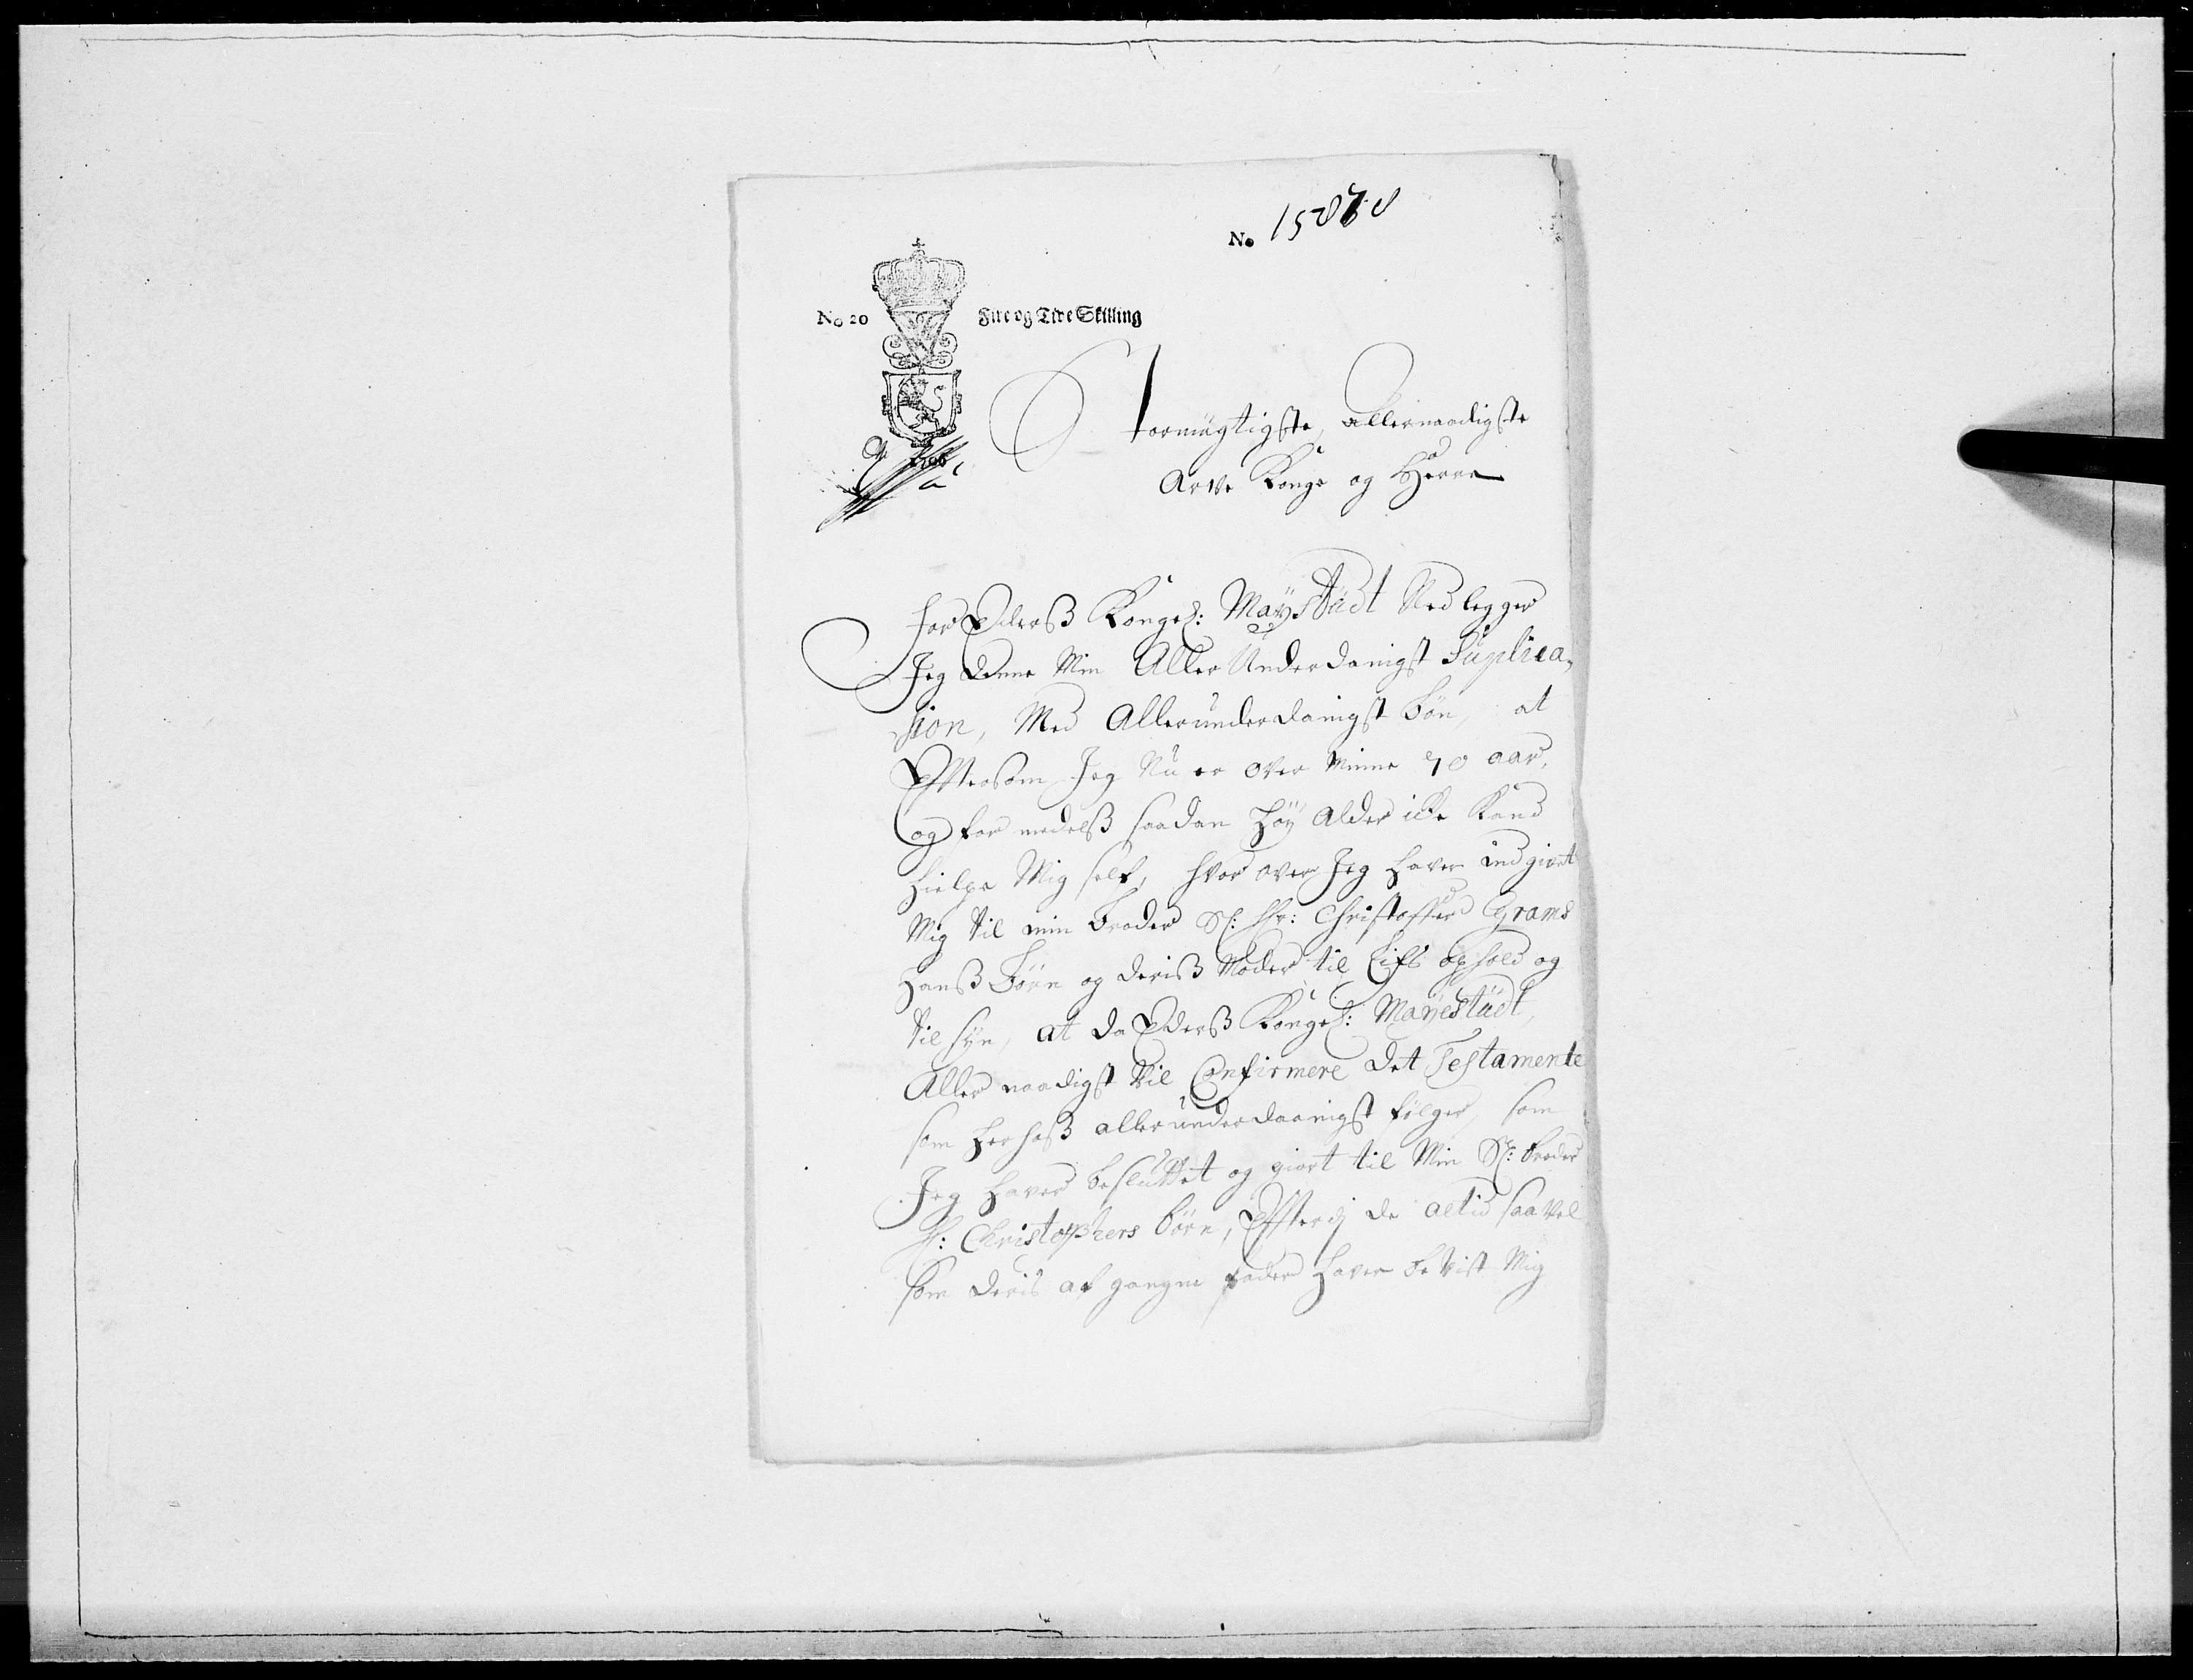 No 15878
No 20 Fire og Tive Skilling
1706
Stormägtigste, Allernaadigste
Arve Konge og Herre
For Eders Kongel: Mayestädt Ned legger
Jeg Denne Min Aller Underdanigst Suplica,
sion, Med Allerunderdanigst bön, at
Effter som Jeg Nu er over minne 70 aar,
og for medelst saadan höÿ Alder icke Kand
hielpe Mig self, hvor over Jeg haver indgivet
Mig til min broder Sl: Hr: Christoffer Grams
hanß börn og deriß Moder til Lifs ophold og
til syn, at da Eders Kongel: Mayestädt,
Aller naadigst vil Confirmere det Testamente
som her hoß allerunderdaanigst fölger, som
Jeg haver besluttet og giort til Min Sl: broder
Hr: Christophers börn, Effterdj de altid saa vel
som deris af gangne fader haver be vist Mig